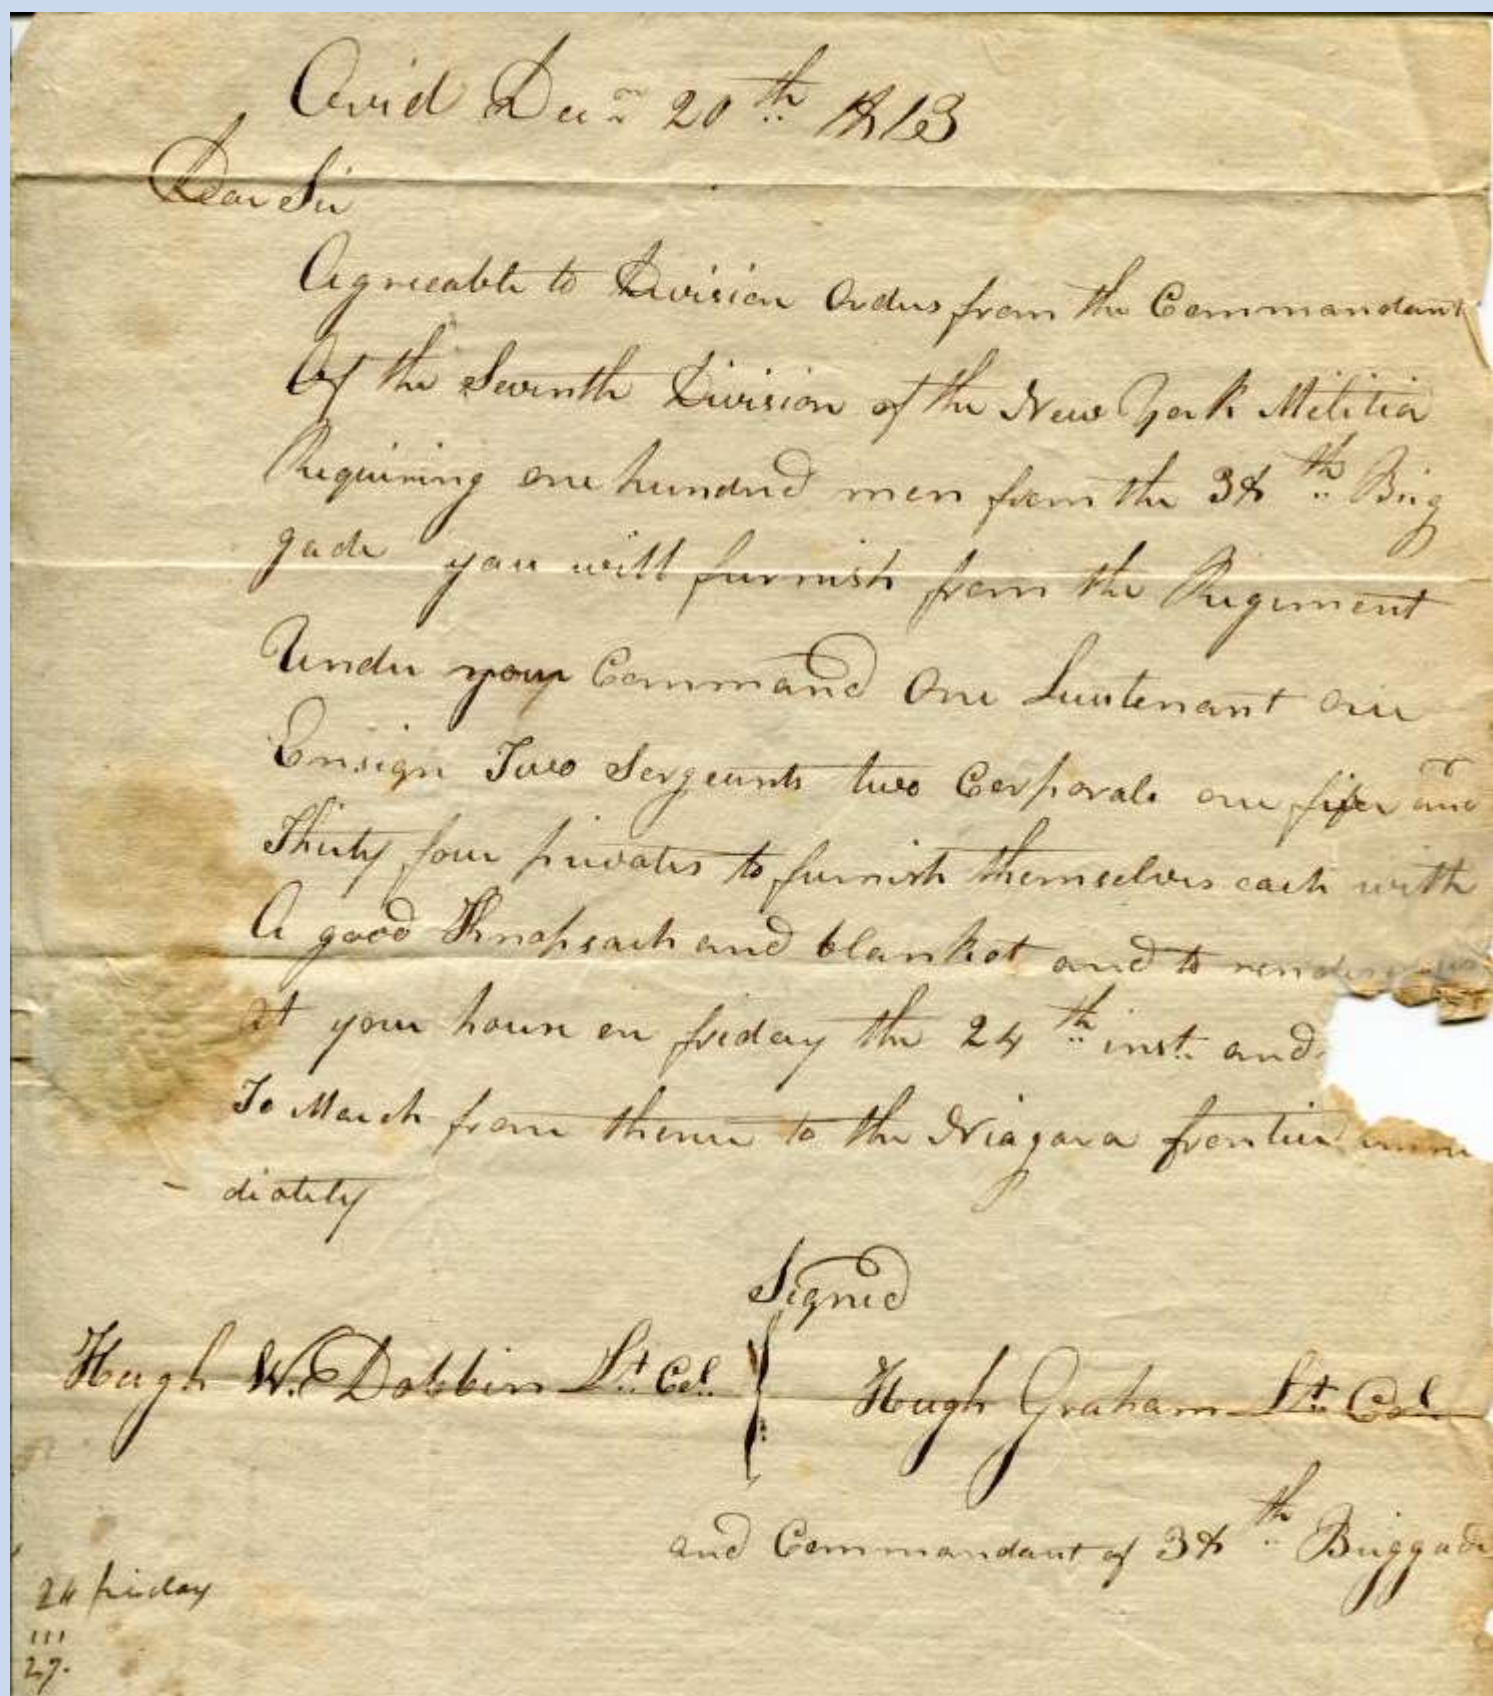 Ovid Decm 20th 1813
Dear Sir
Agreeable to Division Orders from the Commandant
Of the Seventh Division of the New York Militia
Requiring one hundred men from the 38th Brig
gade you will furnish from the Regiment
Under your Command One Lieutenant one
Ensign Two Sergeants two Corporals one fifer and
Thirty four privates to furnish themselves each with
A good Knapsack and blanket and to
at your house on friday the 24th inst. and
To March from thence to the Niagara frontier imme
diately
Signed
Hugh W. Dobbin Lt. Col. Hugh Graham Lt. Col
and Commandant of 38th Briggade
24 friday
111
27.